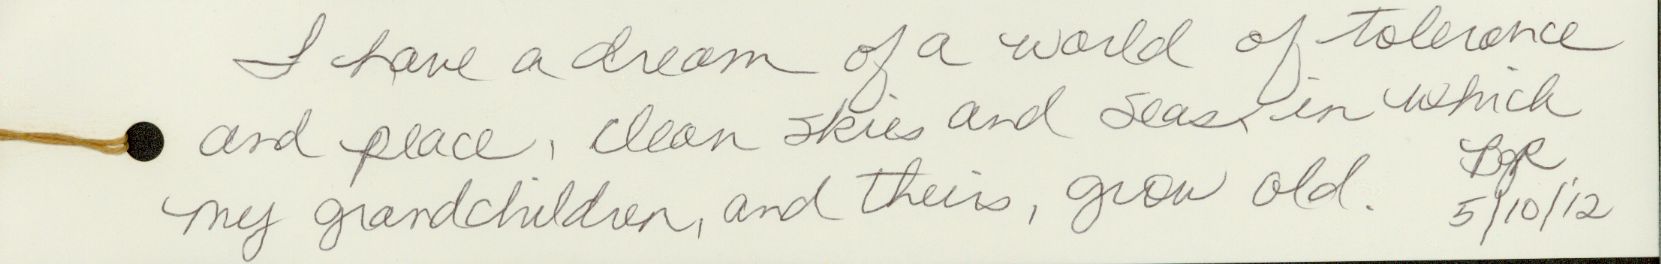 I have a dream of a world of tolerance
and peace, clean skies and seas, in which
my grandchildren, and theirs, grow old.
BJR
5/10/12